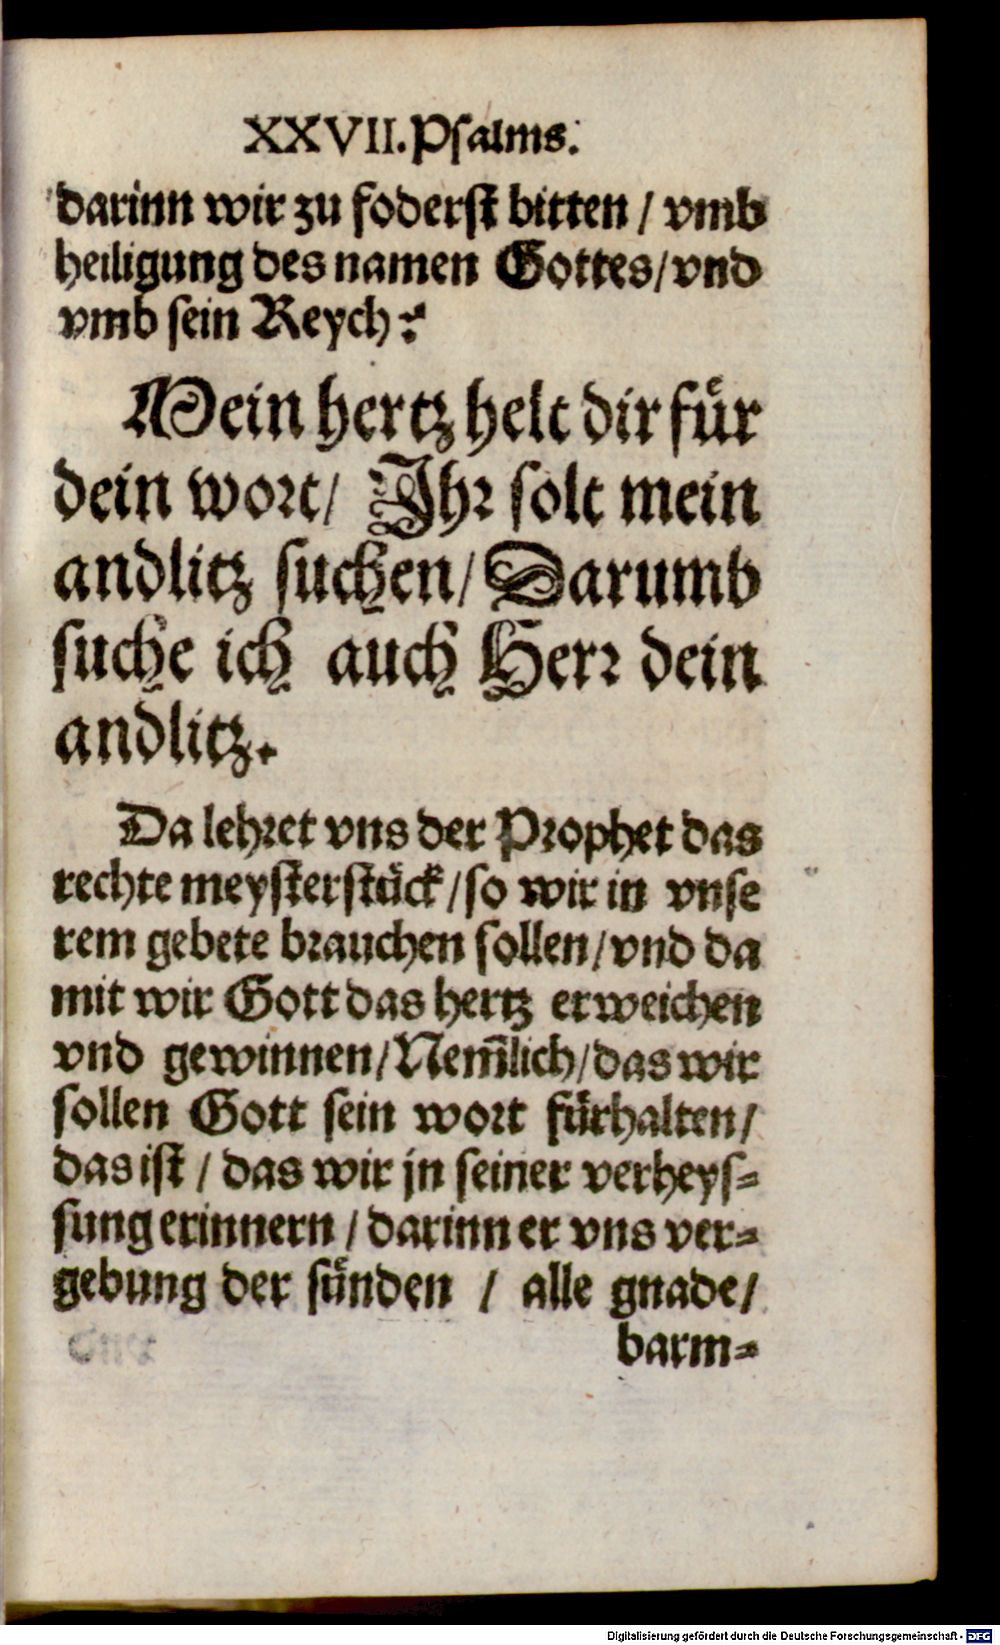 XXVII. Psalms.
darinn wir zu foderst bitten / vmb
heiligung des namen Gottes/vnd
vmb sein Reych:
Mein hertz helt dir für
dein wort/ Ihr solt mein
andlitz suchen/ Darumb
suche ich auch Herr dein
andlitz.
Da lehret vns der Prophet das
rechte meysterstück/so wir in vnse
rem gebete brauchen sollen/vnd da
mit wir Gott das hertz erweichen
vnd gewinnen/Nem̃lich/das wir
sollen Gott sein wort fürhalten/
das ist / das wir jn seiner verheys-
sung erinnern / darinn er vns ver-
gebung der sünden / alle gnade/
barm-
Digitalisierung gefördert durch die Deutsche Forschungsgemeinschaft - DFG